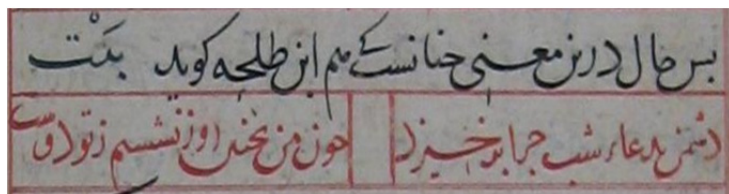 بس حال درین معنی جنانست کے هم ابن طلحه کوید بیت
دشمن بدعاء شب جرا برخیزد جون من نخفتم اوز ننشستم ز تو